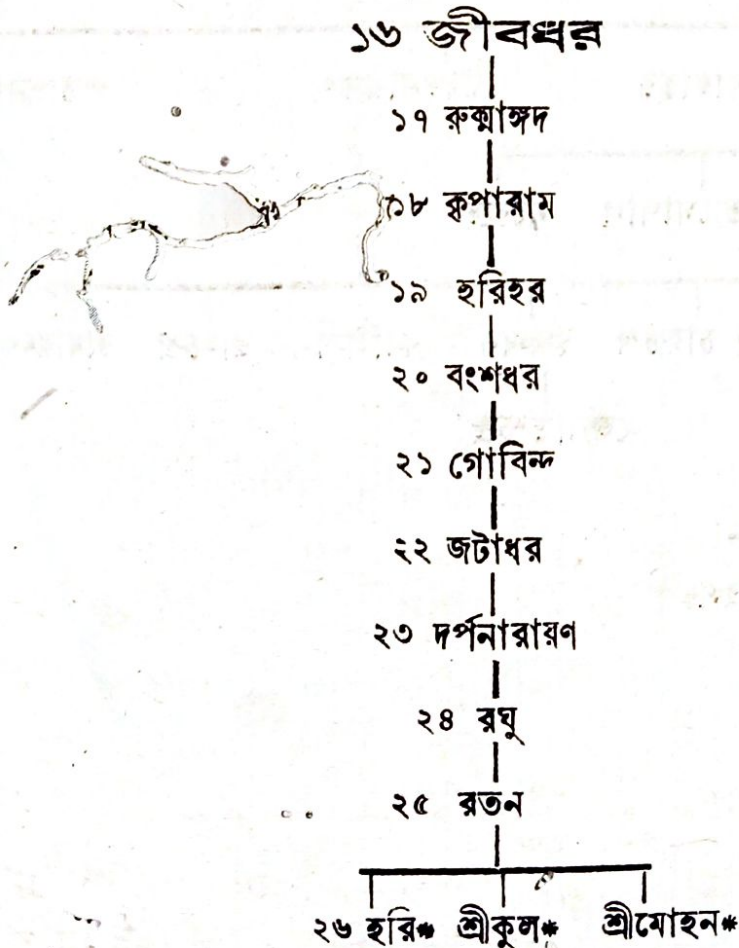 ১৬ জীবধর
১৭ রুক্মাঙ্গদ
১৮ কৃপারাম
১৯ হরিহর
২০ বংশধর
২১ গোবিন্দ
২২ জটাধর
২৩ দর্পনারায়ণ
২৪ রঘু
২৫ রতন
২৬ হরি* শ্রীকুল* শ্রীমোহন*